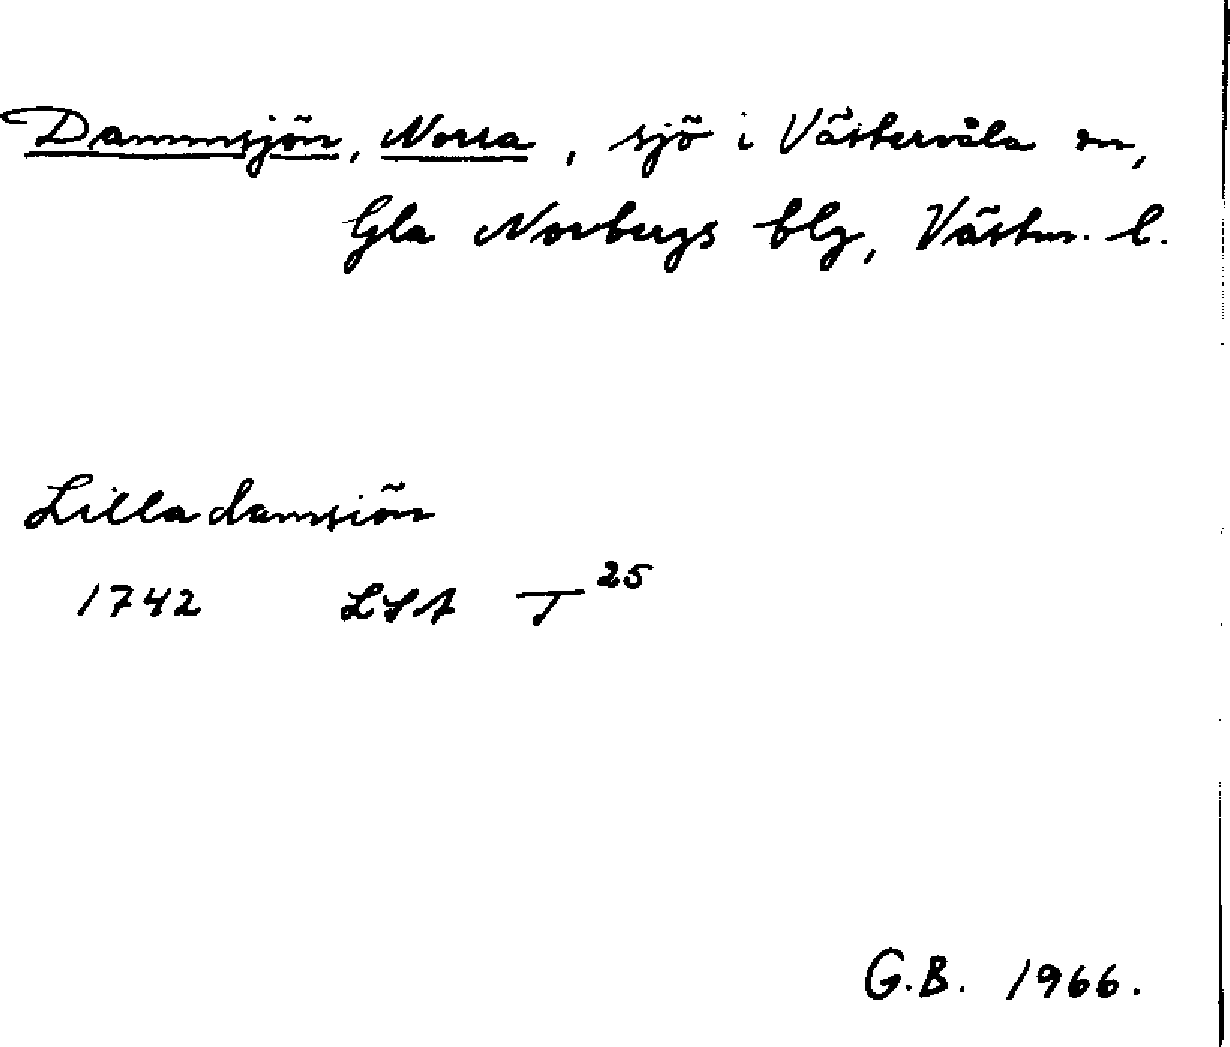 Dammsjön, Norra, sjö i Västervåla sn,
Gla Norbergs blg, Västm. l.
Lilla damsiön
1742 LSA T 25
G.B. 1966.